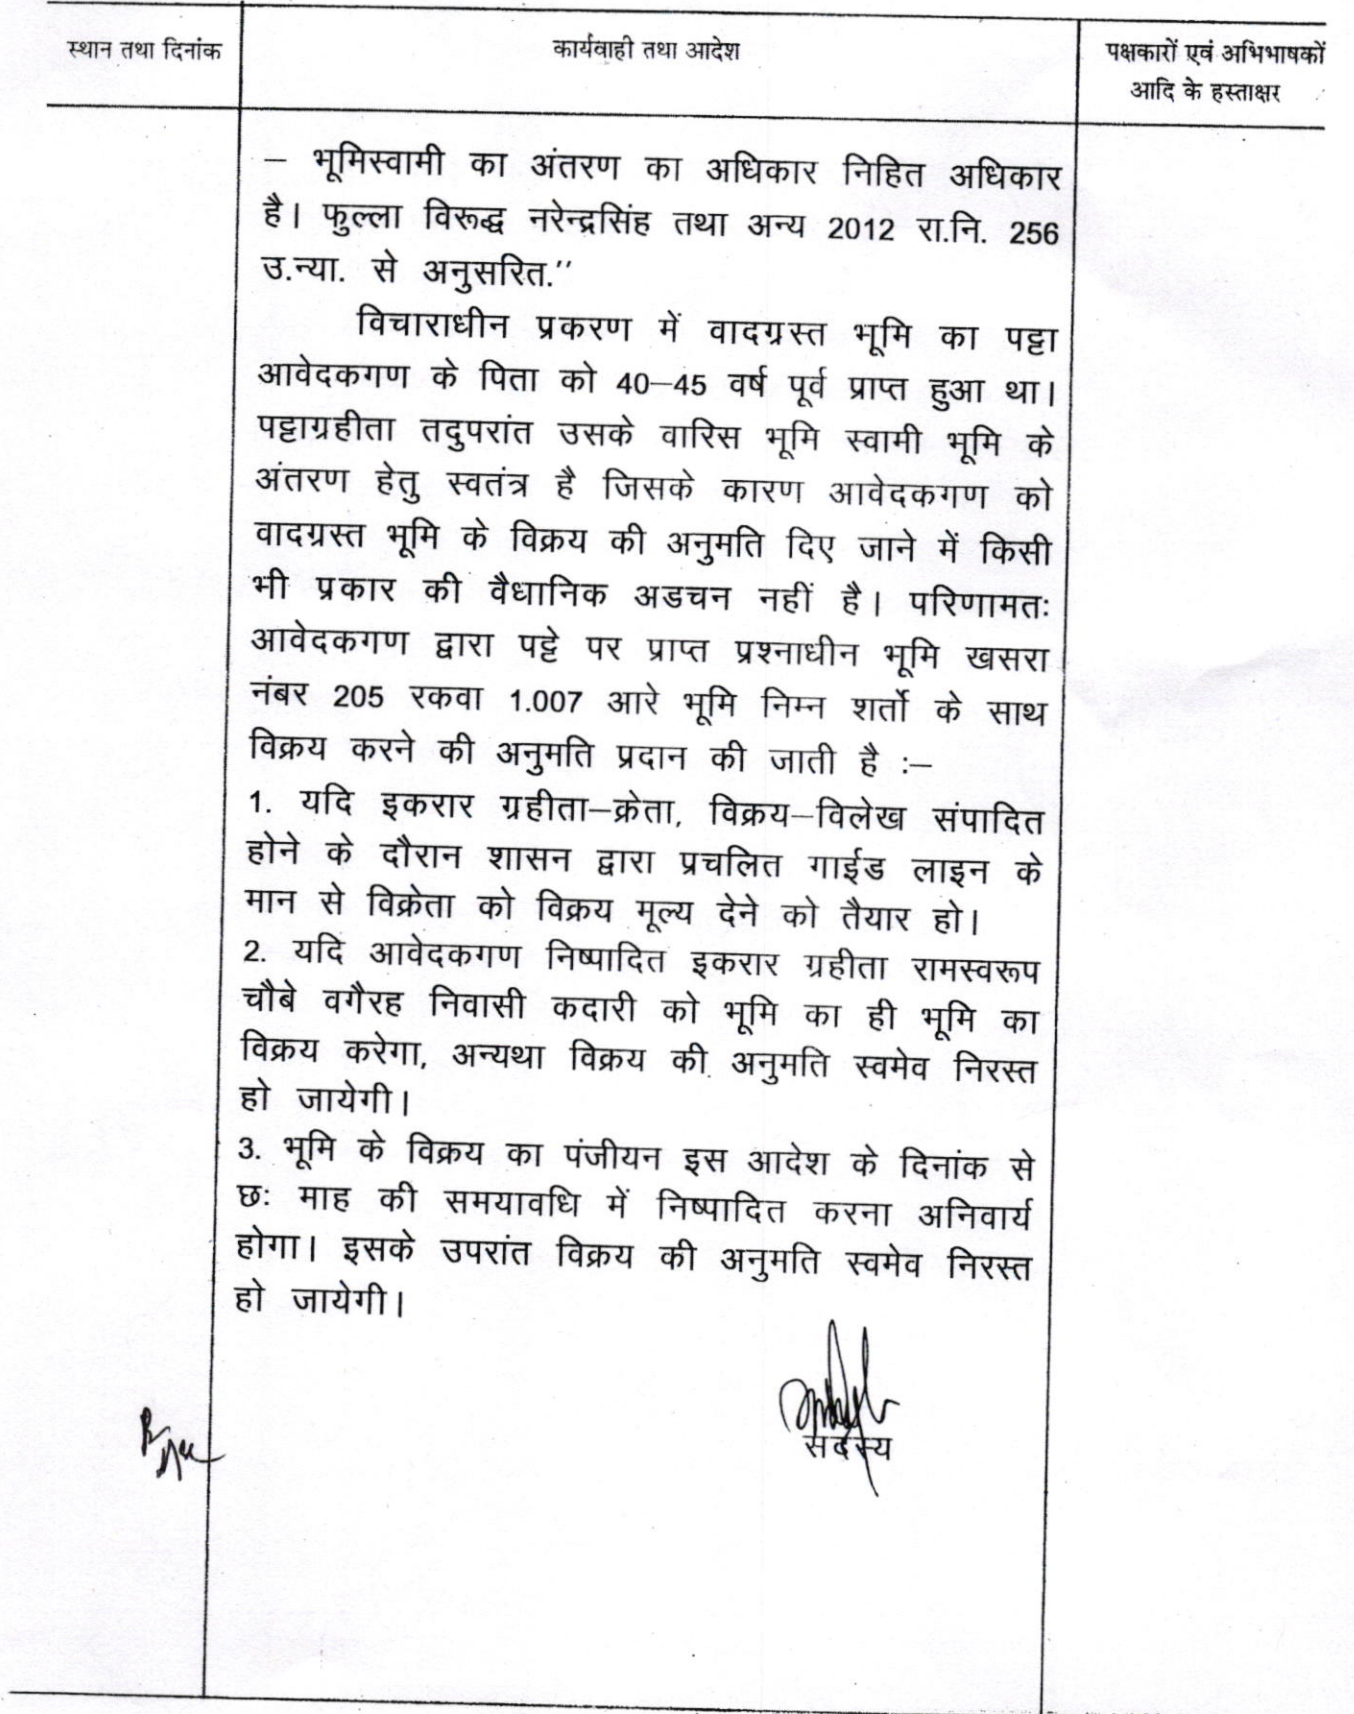 स्थान तथा दिनांक
कार्यवाही तथा आदेश
पक्षकारों एवं अभिभाषकों
आदि के हस्ताक्षर
– भूमिस्वामी का अंतरण का अधिकार निहित अधिकार
है। फुल्ला विरूद्ध नरेन्द्रसिंह तथा अन्य 2012 रा.नि. 256
उ.न्या. से अनुसरित.’’
विचाराधीन प्रकरण में वादग्रस्त भूमि का पट्टा
आवेदकगण के पिता को 40–45 वर्ष पूर्व प्राप्त हुआ था।
पट्टाग्रहीता तदुपरांत उसके वारिस भूमि स्वामी भूमि के
अंतरण हेतु स्वतंत्र है जिसके कारण आवेदकगण को
वादग्रस्त भूमि के विक्रय की अनुमति दिए जाने में किसी
भी प्रकार की वैधानिक अडचन नहीं है। परिणामतः
आवेदकगण द्वारा पट्टे पर प्राप्त प्रश्नाधीन भूमि खसरा
नंबर 205 रकवा 1.007 आरे भूमि निम्न शर्तो के साथ
विक्रय करने की अनुमति प्रदान की जाती है :–
1. यदि इकरार ग्रहीता–क्रेता, विक्रय–विलेख संपादित
होने के दौरान शासन द्वारा प्रचलित गाईड लाइन के
मान से विक्रेता को विक्रय मूल्य देने को तैयार हो।
2. यदि आवेदकगण निष्पादित इकरार ग्रहीता रामस्वरूप
चौबे वगैरह निवासी कदारी को भूमि का ही भूमि का
विक्रय करेगा, अन्यथा विक्रय की अनुमति स्वमेव निरस्त
हो जायेगी।
3. भूमि के विक्रय का पंजीयन इस आदेश के दिनांक से
छः माह की समयावधि में निष्पादित करना अनिवार्य
होगा। इसके उपरांत विक्रय की अनुमति स्वमेव निरस्त
हो जायेगी।
सदस्य